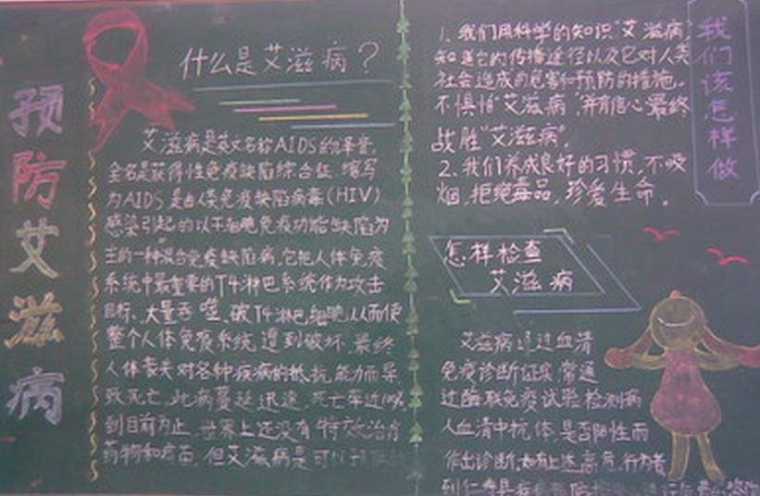 预防艾滋病
什么是艾滋病？
艾滋病是英文名称AIDS的
全名是获得性免疫缺陷综合征 缩写
为AIDS 是由人类免疫缺陷病毒(HIV)
感染引起的以T细胞免疫功能缺陷为
主的一种混合免疫缺陷病，它把人体免疫
系统中最重要的T4淋巴系统作为攻击
目标、大量吞噬、破T4淋巴细胞,从而使
整个人体免疫系统遭到破坏.最终
人体丧失对各种疾病的抵抗能力而导
致死亡，此病蔓延迅速，死亡率近
到目前为止，世界上还没有特效治疗
药物和疫苗，但艾滋病是可以预
我们该怎样做
1、我们用科学的知识"艾滋病"
知道它的传播途径以及它对人类
社会造成的危害和预防的措施。
不惧怕"艾滋病"，并有信心最终
战胜"艾滋病"。
2、我们养成良好的习惯，不吸
烟，拒绝毒品，珍爱生命。
怎样检查
艾滋病
艾滋病通过血清
免疫诊断证实，常通
过酶联免疫试验检测病
人血清中抗体，是否阳性而
作出诊断，如有上述高危，行为者